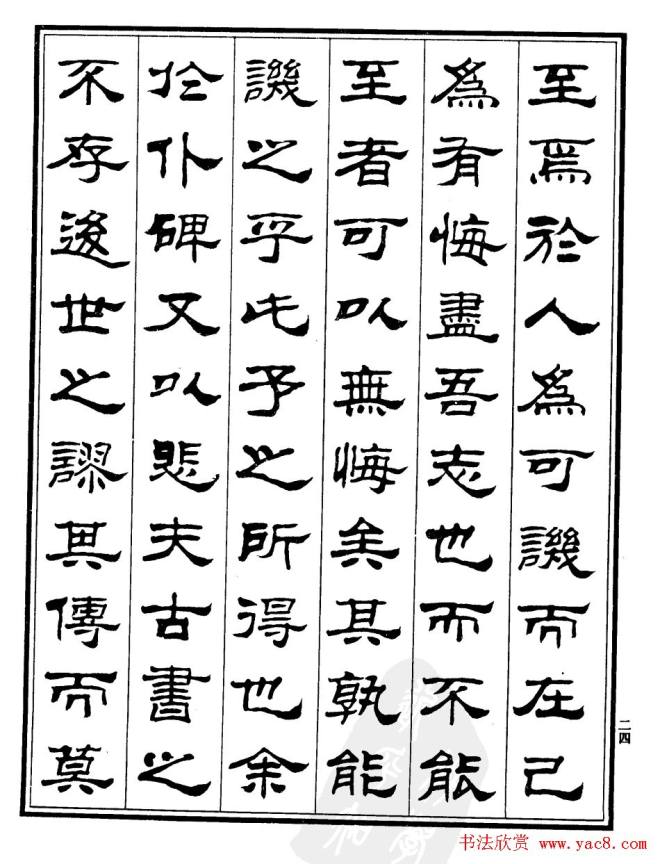 至焉於人為可譏而在己
為有悔盡吾志也而不能
至者可以無悔矣其孰能
譏之乎此予之所得也余
於仆碑又以悲夫古書之
不存後世之謬其傳而莫
二四
书法欣赏 www.yac8.com